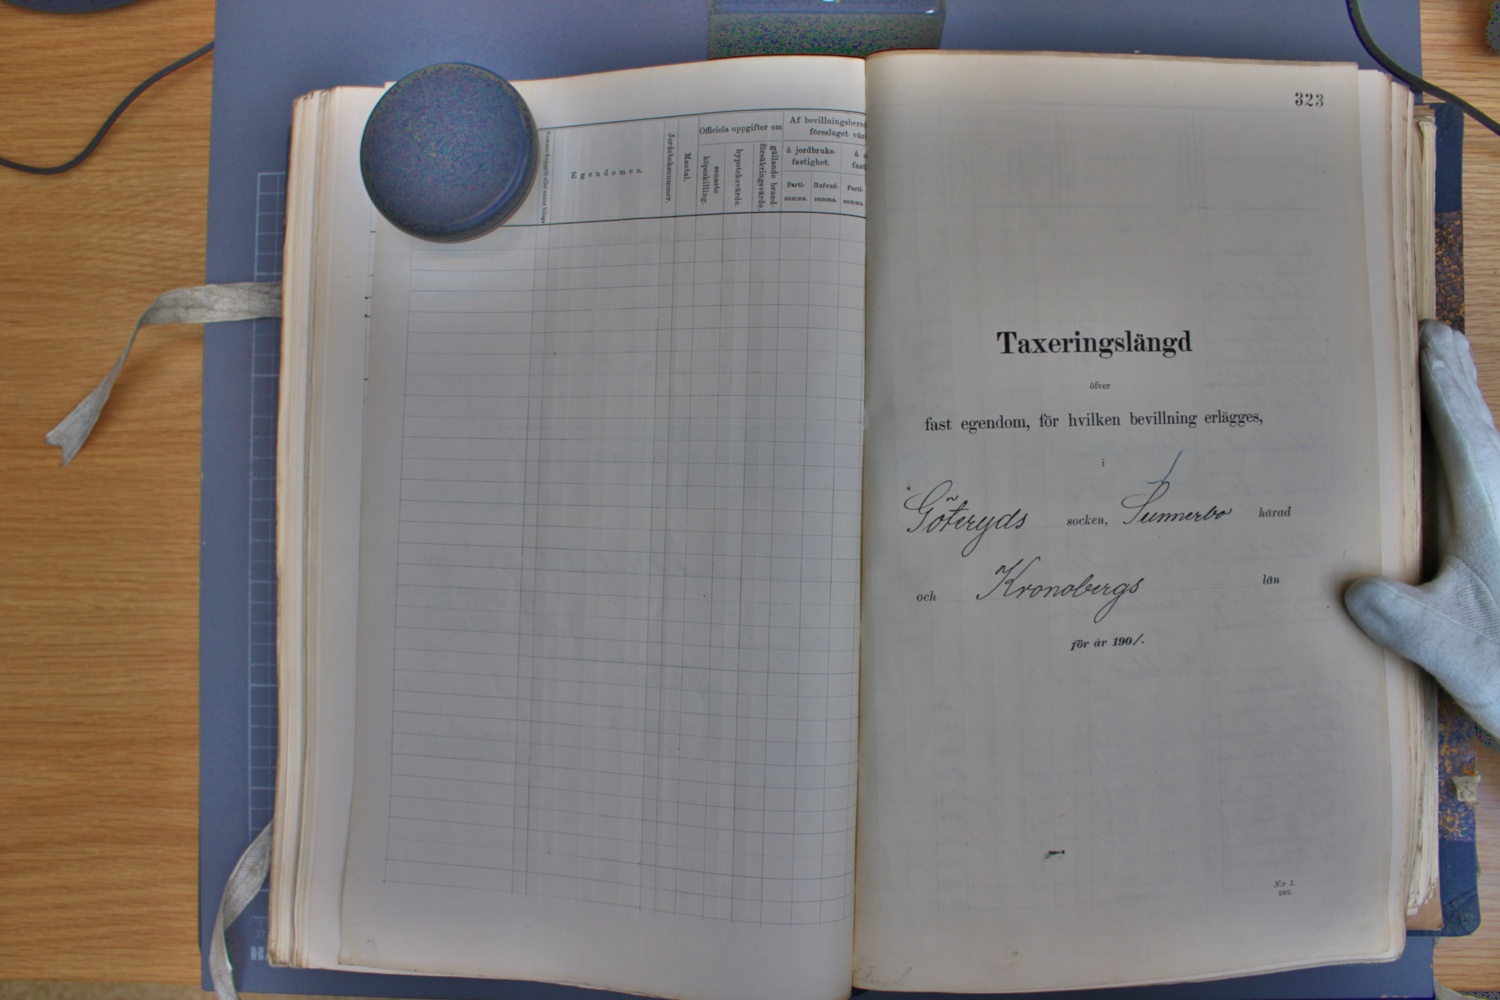 Egendomen.
Jordeboksnummer.
Mantal.
Officiela uppgifter om
senaste köpeskilling.
hypoteksvärde.
gällande brand-
försäkringsvärde.
Af bevillningsbere
föreslaget vär
å jordbruks-
fastighet.
Parti-
summa.
Hufvud-
summa.
fast
Parti-
summa
323
Taxeringslängd
öfver
fast egendom, för hvilken bevillning erlägges,
i
Göteryds socken, Sunnerbo härad
och Kronobergs län
för år 190/.
N:r 1.